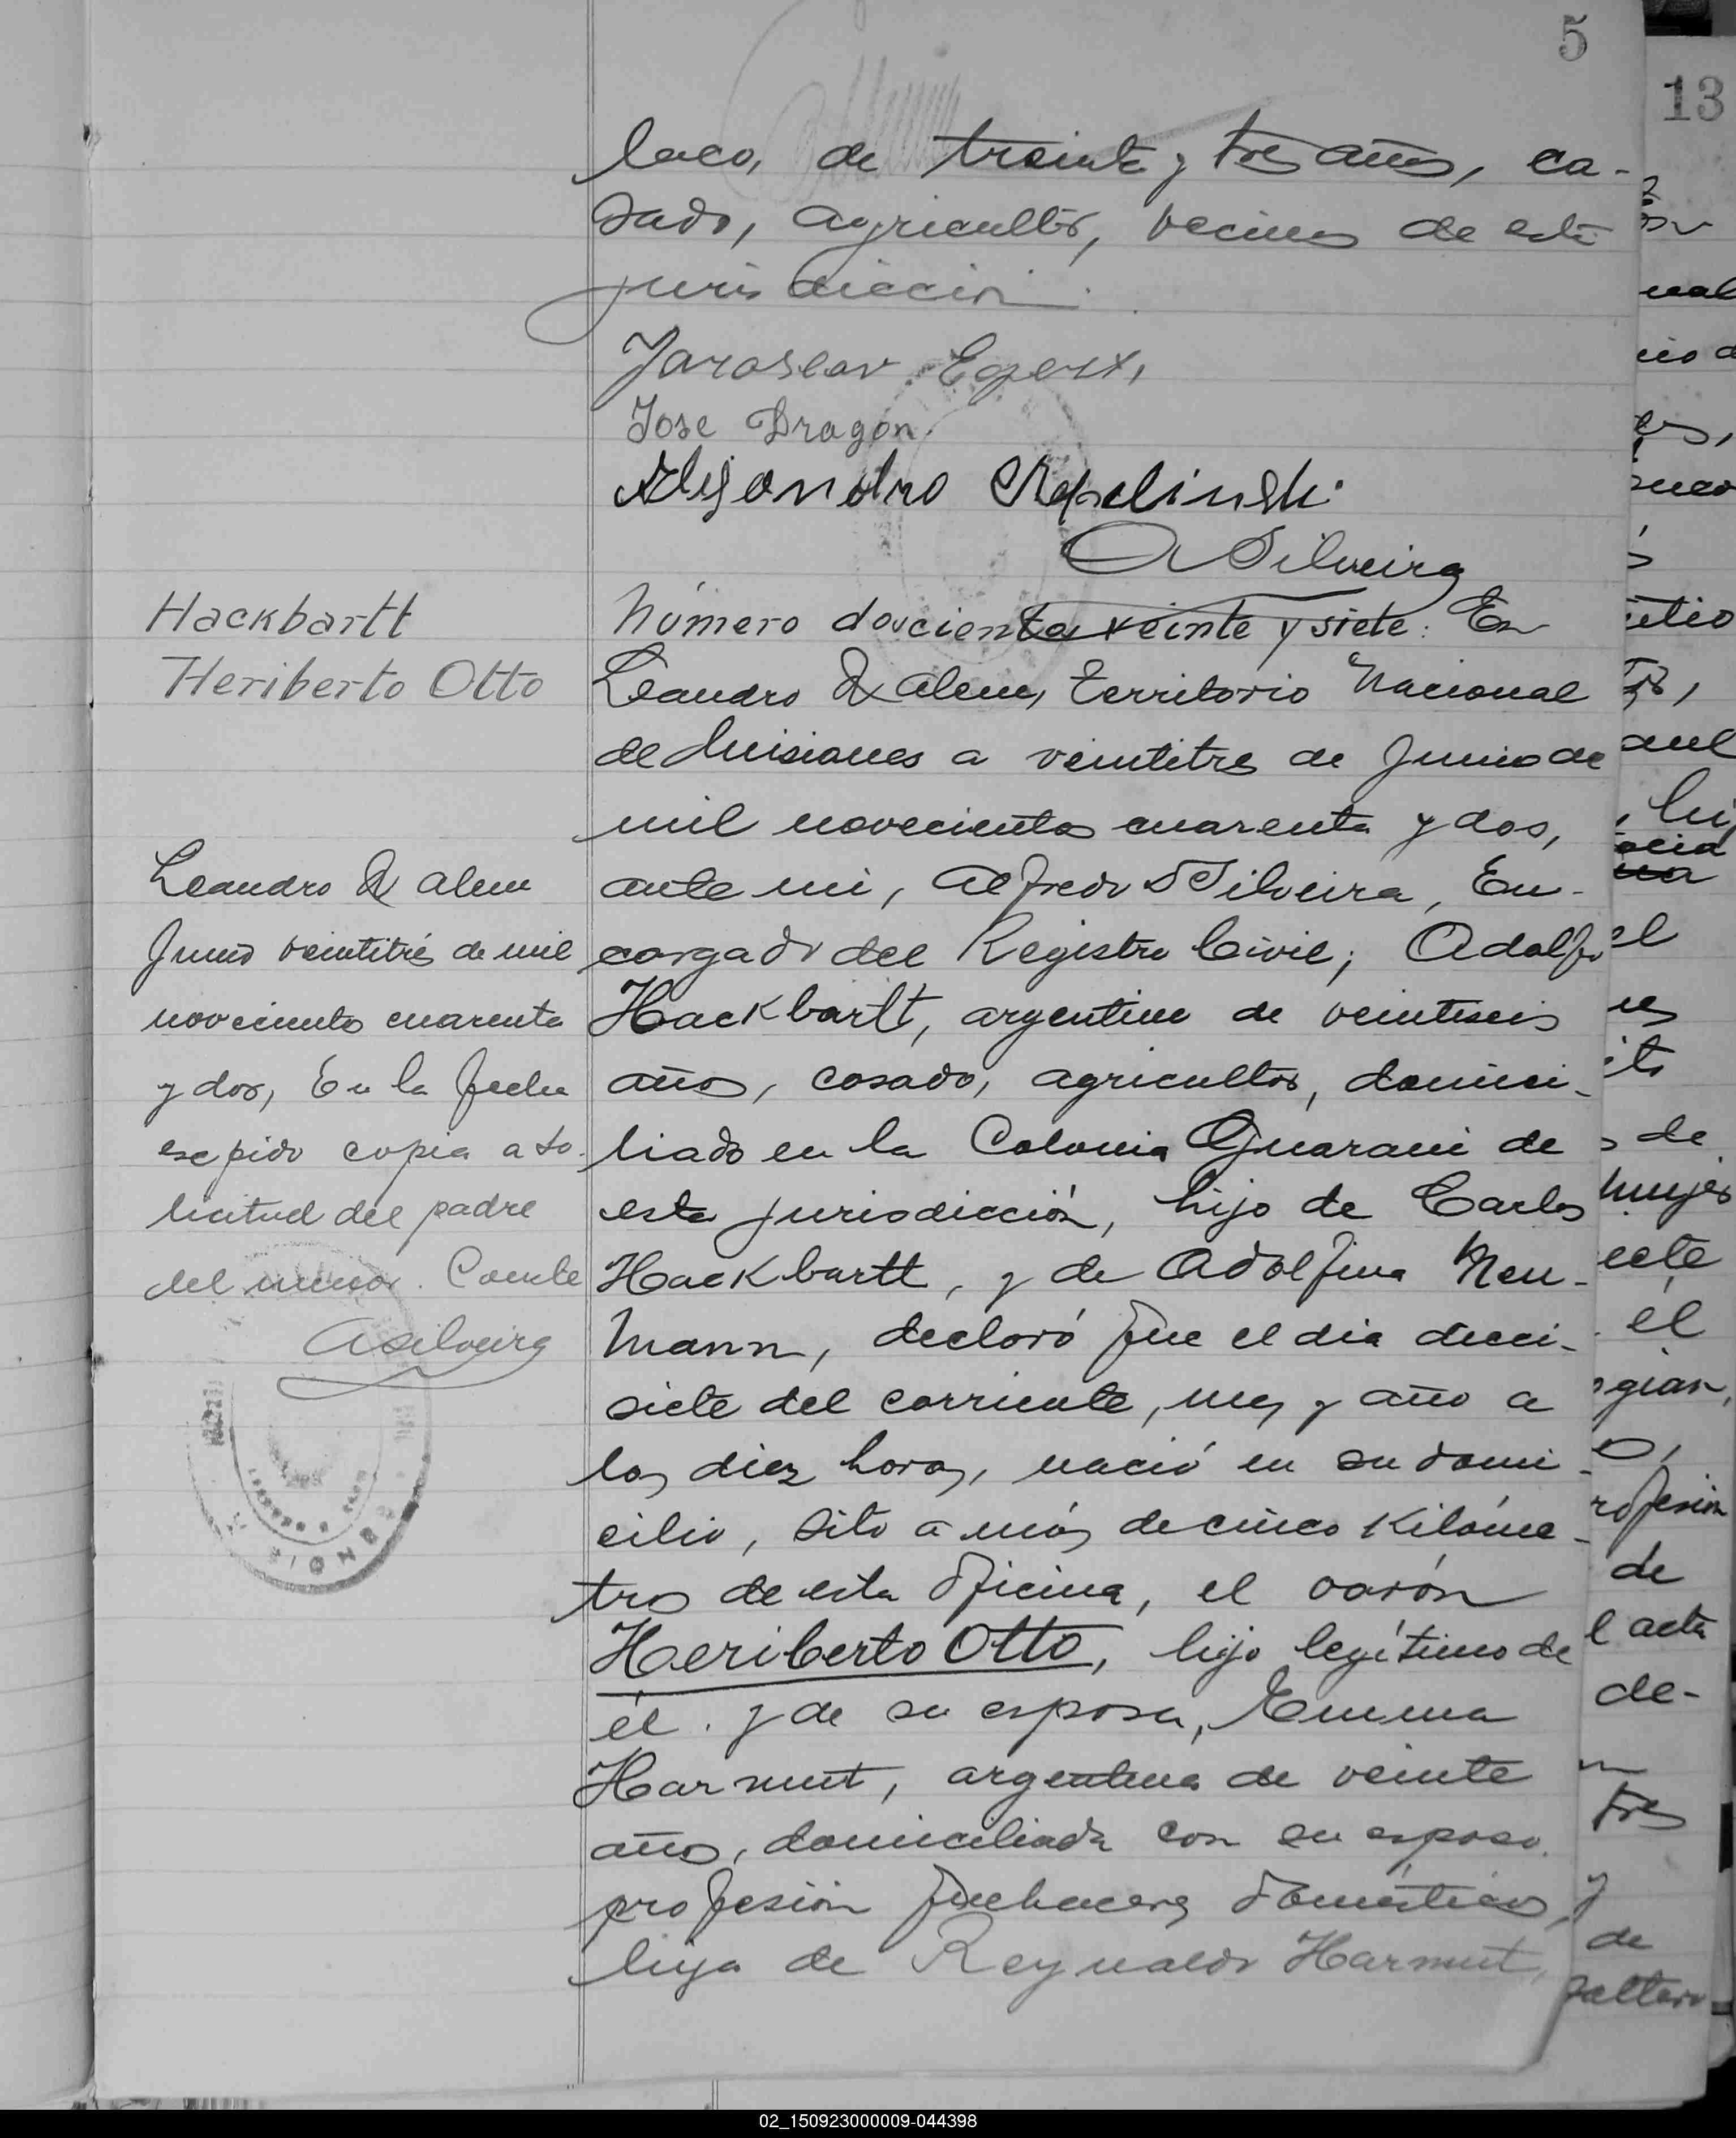 5
13
laco, de treinta y tres años, ca-
sado, agricultor, vecinos de esta
jurisdicción.
Jaroslav Egert,
Jose Dragon.
Alejandro
A Silveira
Hackbartt
Heriberto Otto
Número doscientos veinte y siete: En
Leandro N Alem, territorio Nacional
de Misiones a veintitres de Junio de
mil novecientos cuarenta y dos,
ante mi, Alfredo S Silveira, En-
cargado del Registro Civil; Adolfo
Hackbartt, argentino de veintiseis
años, casado, agricultor, domici-
liado en la Colonia Guarani de
esta jurisdicción, hijo de Carlos
Hackbartt, y de Adolfina Neu-
mann, declaró que el dia dieci-
siete del corriente, mes y año a
las diez horas, nació en su domi-
cilio, sito a más de cinco Kilóme-
tros de esta Oficina, el varón
Heriberto Otto, hijo legítimo de
él. y de su esposa, Emma
Harmut, argentina de veinte
años, domiciliada con su esposo.
profesión quehaceres domésticos,
hija de Reynaldo Harmut,
Leandro N Alem
Junio veintitrés de mil
novecientos cuarenta
y dos, En la fecha
expido copia a so-
licitud del padre
del menor. Conste
ASilveira
02_150923000009-044398